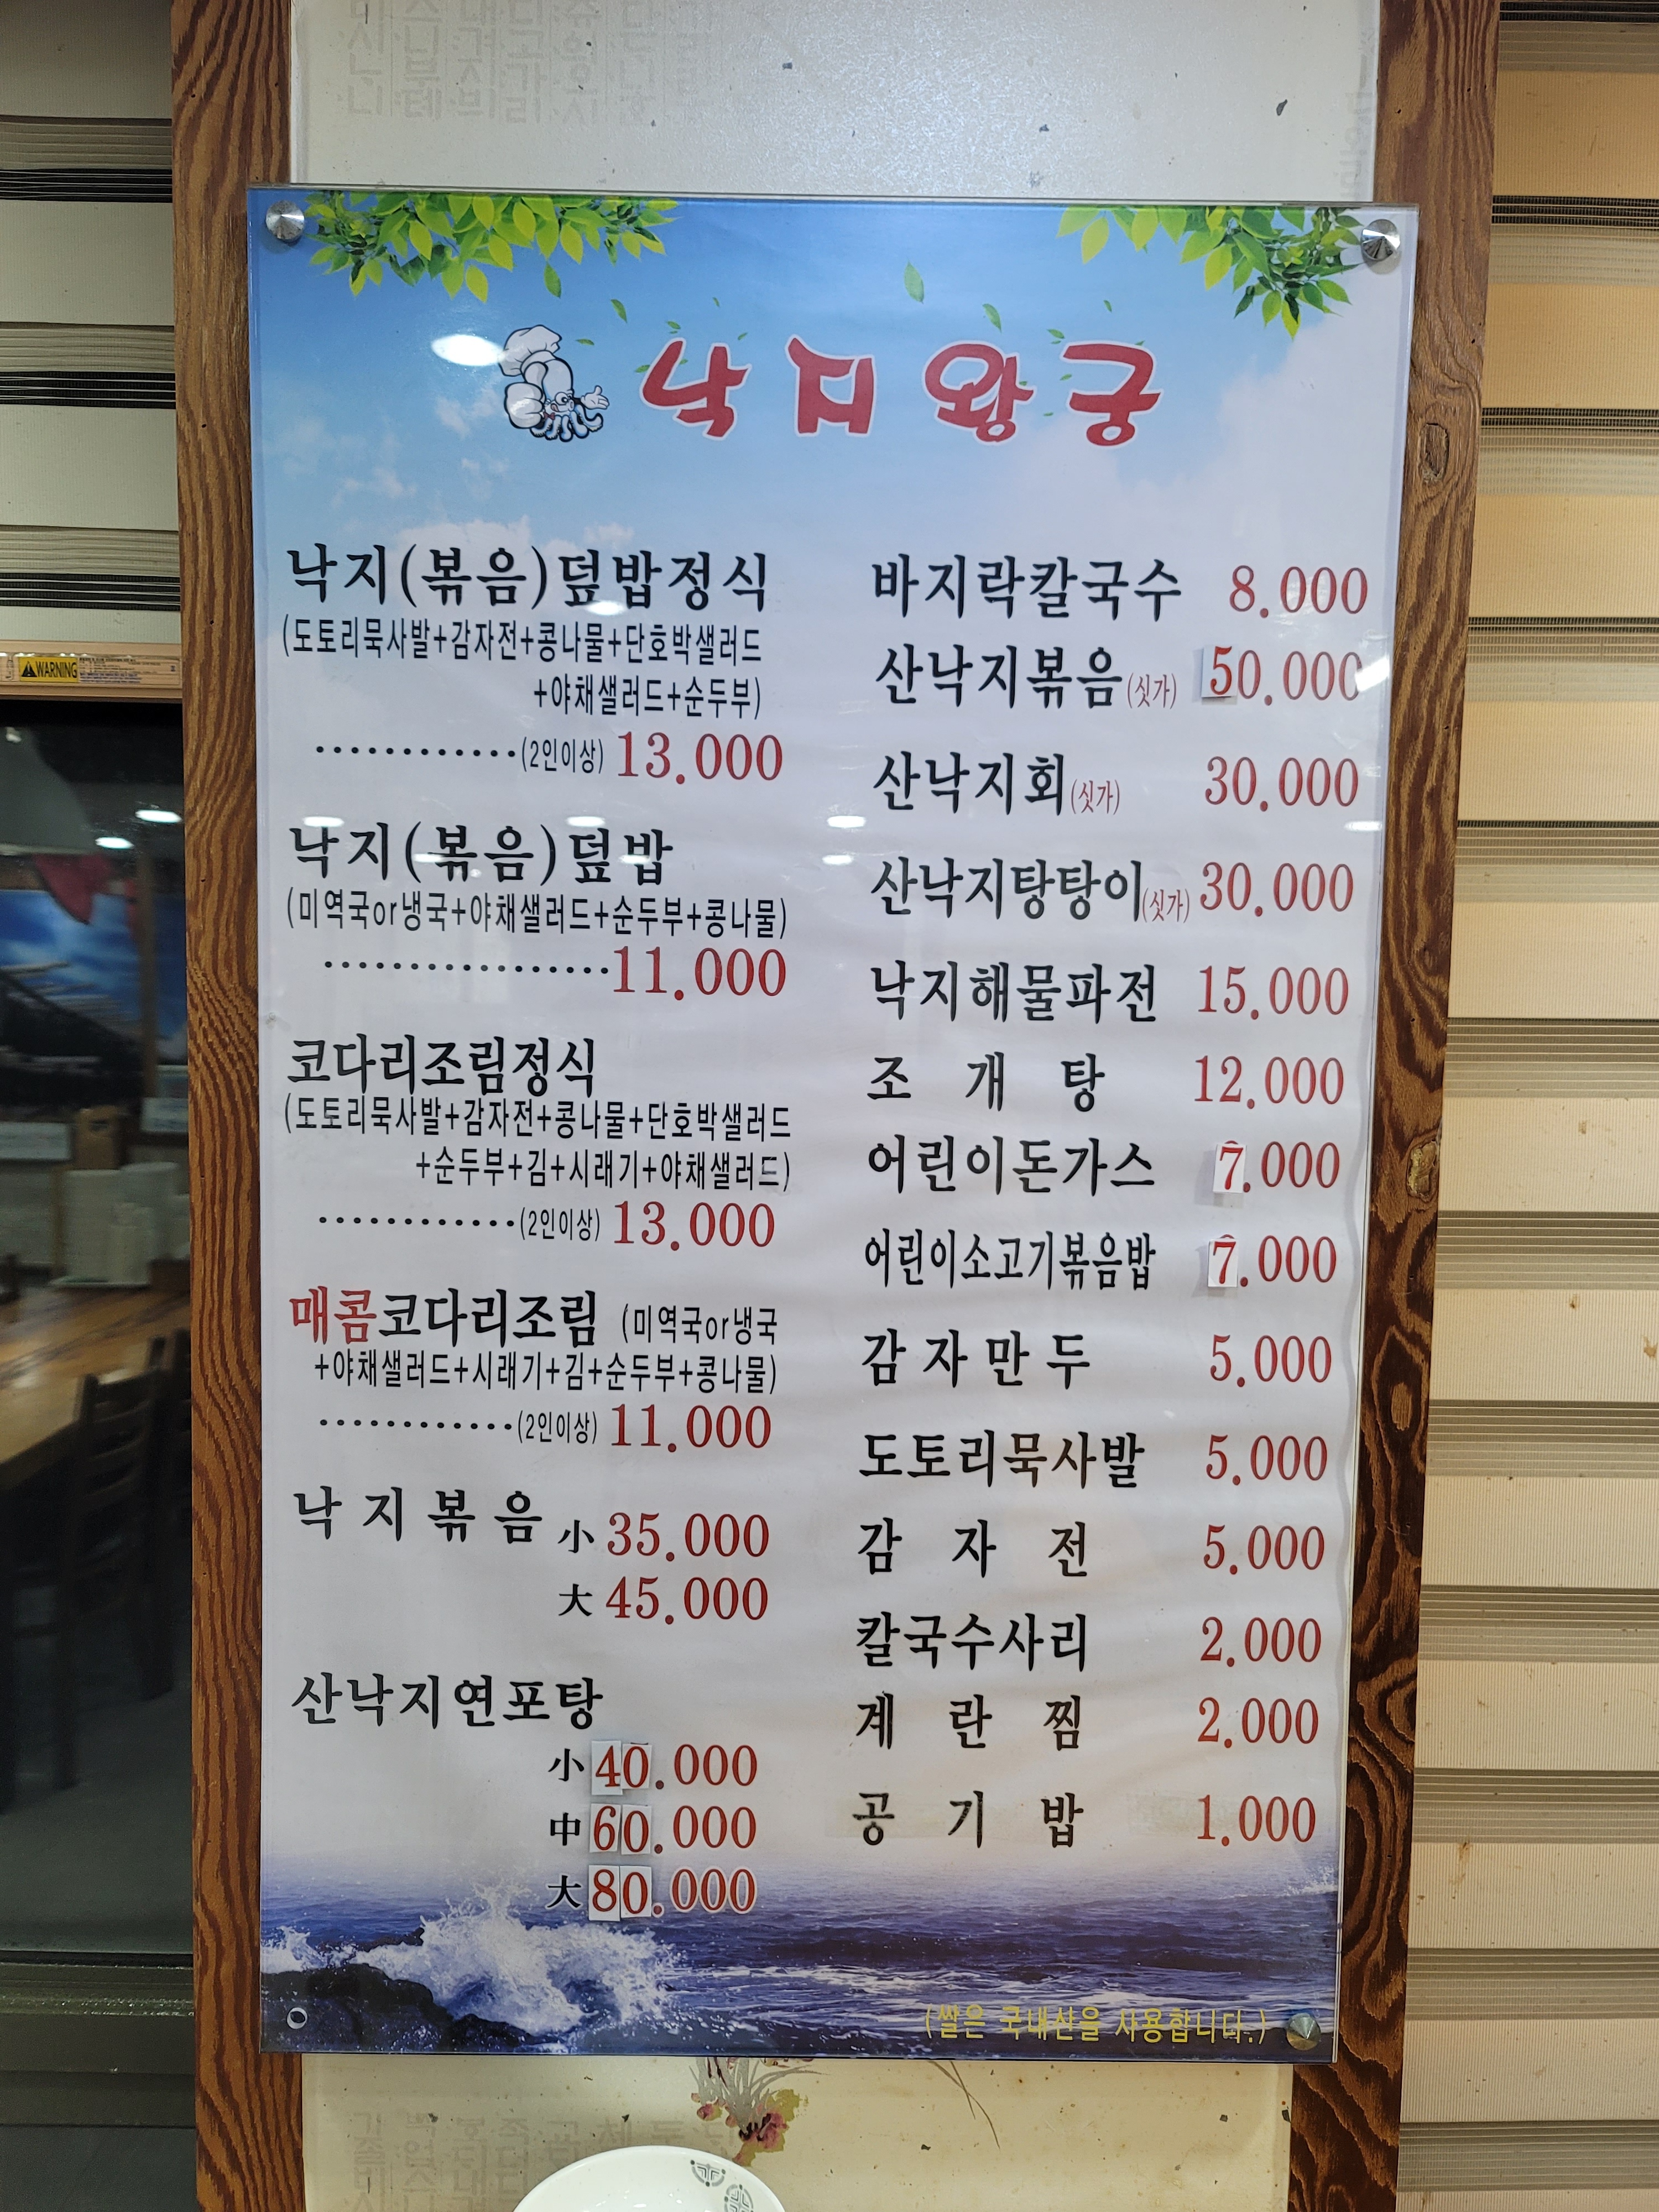 낙지왕궁
낙지(볶음)덮밥정식
(도토리묵사발+감자전+콩나물+단호박샐러드
+야채샐러드+순두부)
············(2인이상) 13.000
낙지(볶음)덮밥
(미역국or냉국+야채샐러드+순두부+콩나물)
·················11.000
코다리조림정식
(도토리묵사발+감자전+콩나물+단호박샐러드
+순두부+김+시래기+야채샐러드)
············(2인이상) 13.000
매콤코다리조림 (미역국or냉국
+야채샐러드+시래기+김+순두부+콩나물)
············(2인이상) 11.000
낙지볶음 小 35.000
大 45.000
산낙지연포탕
小 40.000
中 60.000
大 80.000
바지락칼국수 8.000
산낙지볶음(싯가) 50.000
산낙지회(싯가) 30.000
산낙지탕탕이(싯가) 30.000
낙지해물파전 15.000
조개탕 12.000
어린이돈가스 7.000
어린이소고기볶음밥 7.000
감자만두 5.000
도토리묵사발 5.000
감자전 5.000
칼국수사리 2.000
계란찜 2.000
공기밥 1.000
(쌀은 국내산을 사용합니다.)
WARNING